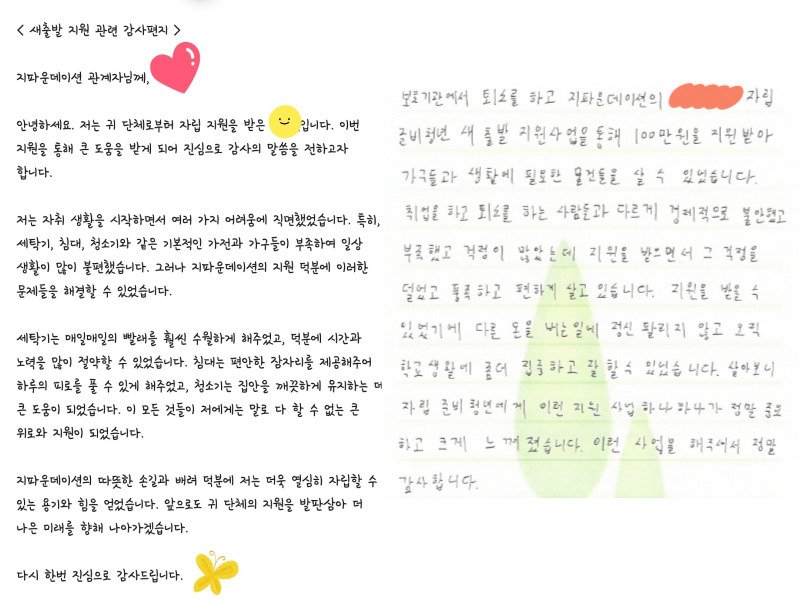 < 새출발 지원 관련 감사편지 >
지파운데이션 관계자님께,
안녕하세요. 저는 귀 단체로부터 자립 지원을 받은 입니다. 이번
지원을 통해 큰 도움을 받게 되어 진심으로 감사의 말씀을 전하고자
합니다.
저는 자취 생활을 시작하면서 여러 가지 어려움에 직면했었습니다. 특히,
세탁기, 침대, 청소기와 같은 기본적인 가전과 가구들이 부족하여 일상
생활이 많이 불편했습니다. 그러나 지파운데이션의 지원 덕분에 이러한
문제들을 해결할 수 있었습니다.
세탁기는 매일매일의 빨래를 훨씬 수월하게 해주었고, 덕분에 시간과
노력을 많이 절약할 수 있었습니다. 침대는 편안한 잠자리를 제공해주어
하루의 피로를 풀 수 있게 해주었고, 청소기는 집안을 깨끗하게 유지하는 데
큰 도움이 되었습니다. 이 모든 것들이 저에게는 말로 다 할 수 없는 큰
위로와 지원이 되었습니다.
지파운데이션의 따뜻한 손길과 배려 덕분에 저는 더욱 열심히 자립할 수
있는 용기와 힘을 얻었습니다. 앞으로도 귀 단체의 지원을 발판삼아 더
나은 미래를 향해 나아가겠습니다.
다시 한번 진심으로 감사드립니다.
보호기관에서 퇴소를 하고 지파운데이션의 자립
준비청년 새 출발 지원사업을 통해 100만원을 지원받아
가구들과 생활에 필요한 물건들을 살 수 있었습니다.
취업을 하고 퇴소를 하는 사람들과 다르게 경제적으로 불안했고
부족했고 걱정이 많았는데 지원을 받으면서 그 걱정을
덜었고 풍족하고 편하게 살고 있습니다. 지원을 받을 수
있었기에 다른 돈을 버는일에 정신 팔리지 않고 오직
학교생활에 좀더 집중하고 잘 할수 있었습니다. 살아보니
자립 준비청년에게 이런 지원 사업 하나하나가 정말 중요
하고 크게 느껴졌습니다. 이런 사업을 해주셔서 정말
감사합니다.